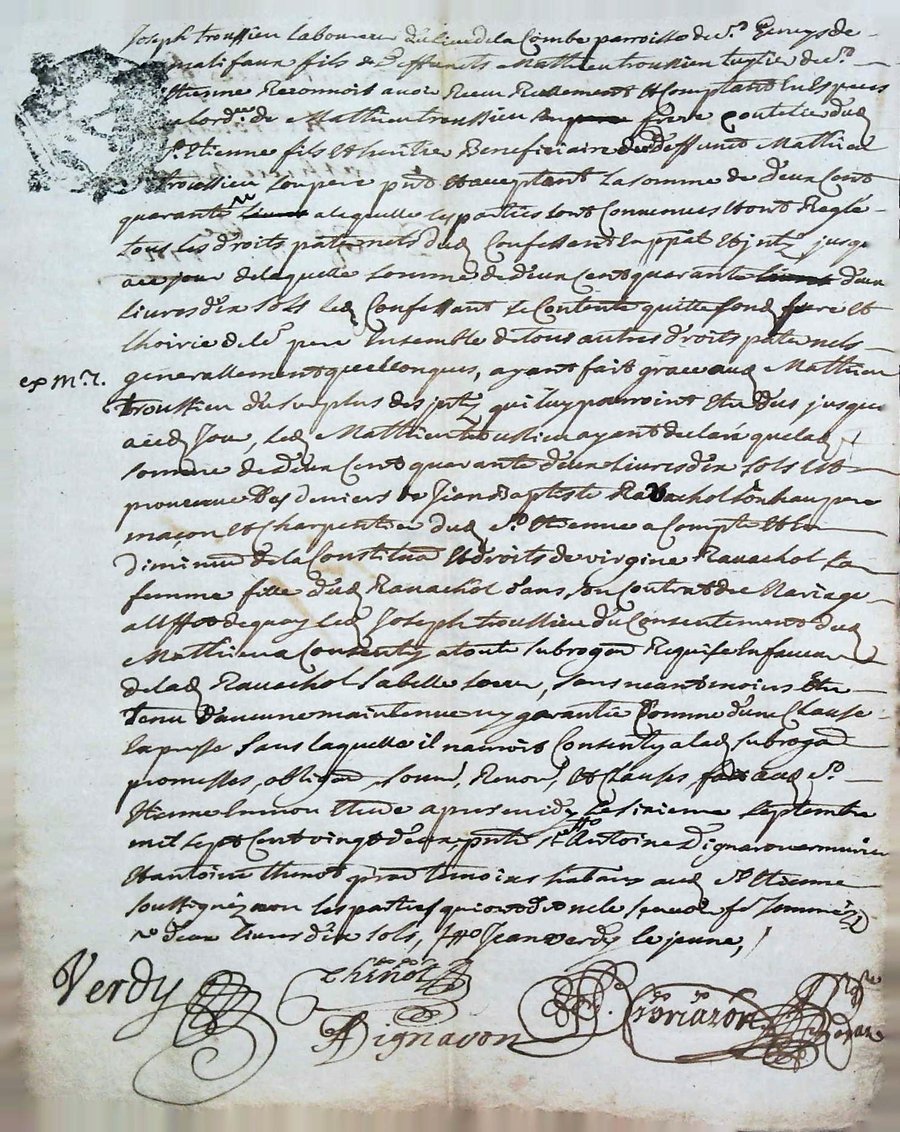 Joseph troussieu laboureur du lieu de la Combe parroisse de St Genys de
malifaux fils de deffunct Mathieu troussieu de St
Etienne Reconnois avoir Receu Reellement et Comptant en Especes
de Mathieu troussieu frere coutelier dud
St Etienne fils et heritier Beneficiaire dud deffunct Mathieu
troussieu son pere pnt et aceptant la somme de deux Cent
quarante a lequelle les parties sont Convenues et ont Reglé
tous les droits paternels dud Confessent en ppal et jntz jusqe
a ce jour de laquelle somme de deux Cent quarante deux
livres dix sols led Confessant se Contente quitte sond frere et
lhoirie de le pere Ensemble de tous autres droits paternels
generallement quelconques, ayant fait grace aud Mathieu
exp Mr 7.
troussieu du surplus des jntz qui luy pourroint Etre dus jusques
a ced Jour, led Mathieu troussieu ayant declaré que lad
somme de deux Cent quarante deux livres dix sols Est
provenue des deniers de Jean Baptiste Ravachol son beaupere
maçon et Charpentier dud St Etienne a Compte et en
diminuon de la Constituon et droits de virgine Ravachol sa
femme fille dud Ravachol dans son Contrat de Mariage
a leffet de quoy led Joseph troussieu du Consentement dud
Mathieu a Consenty a toute subrogaon Requise en faveur
de lad Ravachol sa belle soeur, sans neantmoins Etre
tenu d'aucune maintenue ny garantie Comme d'une Clause
expresse sans laquelle il nauroit Consenty a lad subrogaon
promesses, obligaon soum, Renon, et Clauses, fait aud St
Etienne en mon Etude apres midy le sixieme septembre
mil sept Cent vingt deux, pnts Sr Antoine Dignaron armurier
et antoine thinot temoins habans aud St Etienne
soussignéz non les parties qui ont dit ne le scavoir fe sommé
deux livres dix sols, Jean verdy le jeune,
Verdy
thinot
Dignaron